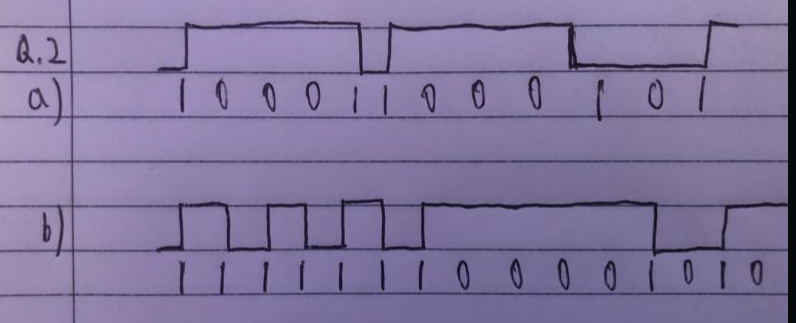 Q.2
a) 1 0 0 0 1 1 0 0 0 1 0 1
b) 1 1 1 1 1 1 1 0 0 0 0 1 0 1 0